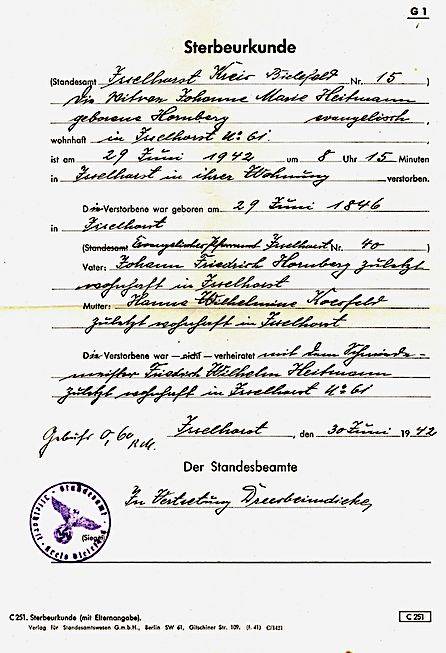 G 1
Sterbeurkunde
(Standesamt Isselhorst Kreis Bielefeld Nr. 15)
Die Witwe Johanne Marie Heitmann
geborene Hornberg evangelisch,
wohnhaft in Isselhorst No 61.
ist am 29 Juni 1942 um 8 Uhr 15 Minuten
in Isselhorst in ihrer Wohnung verstorben.
Die Verstorbene war geboren am 29 Juni 1846
in Isselhorst
(Standesamt Evangelisches Pfarramt Isselhorst Nr. 40)
Vater: Johann Friedrich Hornberg zuletzt
wohnhaft in Isselhorst
Mutter: Hanne Wilhelmine
zuletzt wohnhaft in Isselhorst
Die Verstorbene war — nicht — verheiratet mit dem Schneider-
meister Friedrich Wilhelm Heitmann
zuletzt wohnhaft in Isselhorst No 61
Gebühr 0,60 RM. Isselhorst, den 30 Juni 1942
Der Standesbeamte
In Vertretung
(Siegel)
Standesamt Isselhorst
Kreis Bielefeld
C 251. Sterbeurkunde (mit Elternangabe). C 251
Verlag für Standesamtswesen G.m.b.H., Berlin SW 61, Gitschiner Str. 109. (f. 41)